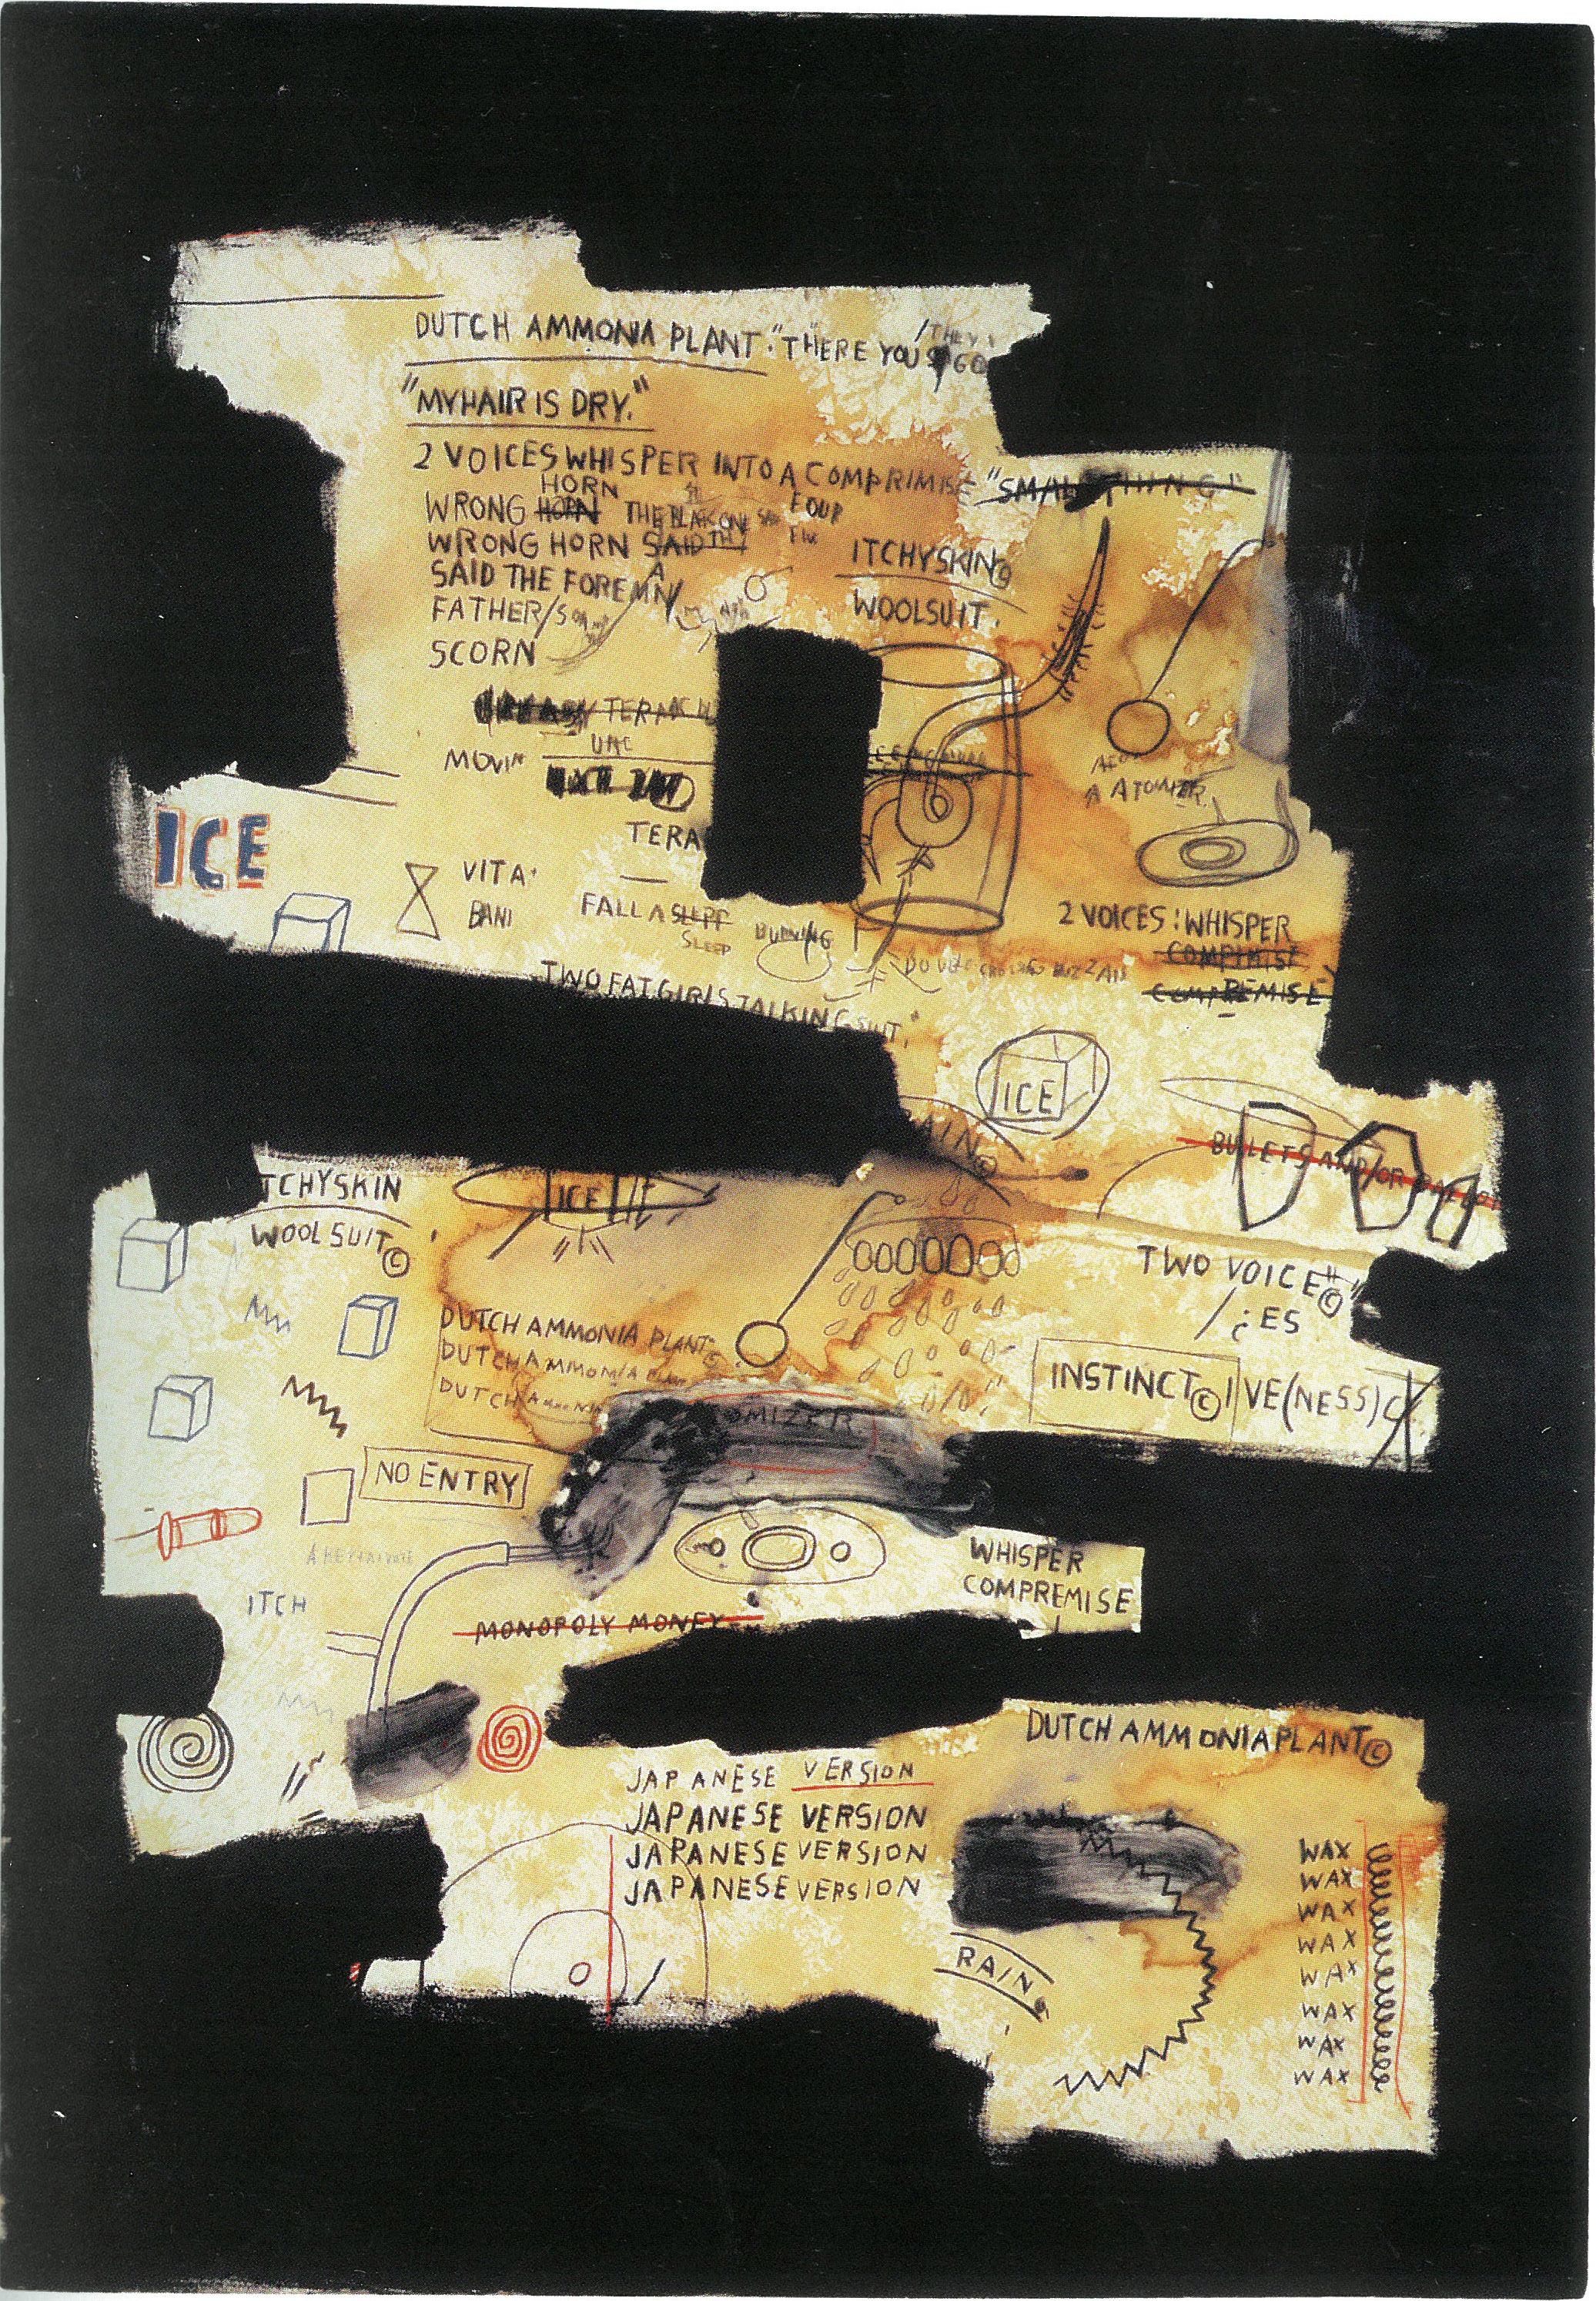 DUTCH AMMONIA PLANT. "THERE YOU GO
/THEY
"MY HAIR IS DRY."
2 VOICES WHISPER INTO A COMPRIMISE "SMALL THING!"
HORN
WRONG HORN THE BLAK ONE FOUR
WRONG HORN SAID THE
SAID THE FOREMAN
FATHER/
SCORN
ITCHYSKIN©
WOOLSUIT.
MOVIN"
TERA
ICE
VITA.
BANI
FALL ASLEEP
SLEEP
A ATOMIZER
2 VOICES: WHISPER
COMPIMISE
COMPREMISE
TWO FAT GIRLS TALKING SHIT."
ICE
AIN©
BULLETS AND/OR
TCHYSKIN
WOOLSUIT©
ICE
TWO VOICE"©
/¿ES
DUTCH AMMONIA PLANT
DUTCH AMMONIA PLANT
DUTCH AMMONIA
INSTINCT©IVE(NESS)
OMIZER
NO ENTRY
ITCH
MONOPOLY MONEY
WHISPER
COMPREMISE
DUTCH AMMONIA PLANT©
JAPANESE VERSION
JAPANESE VERSION
JAPANESE VERSION
JAPANESE VERSION
RAIN
WAX
WAX
WAX
WAX
WAX
WAX
WAX
WAX